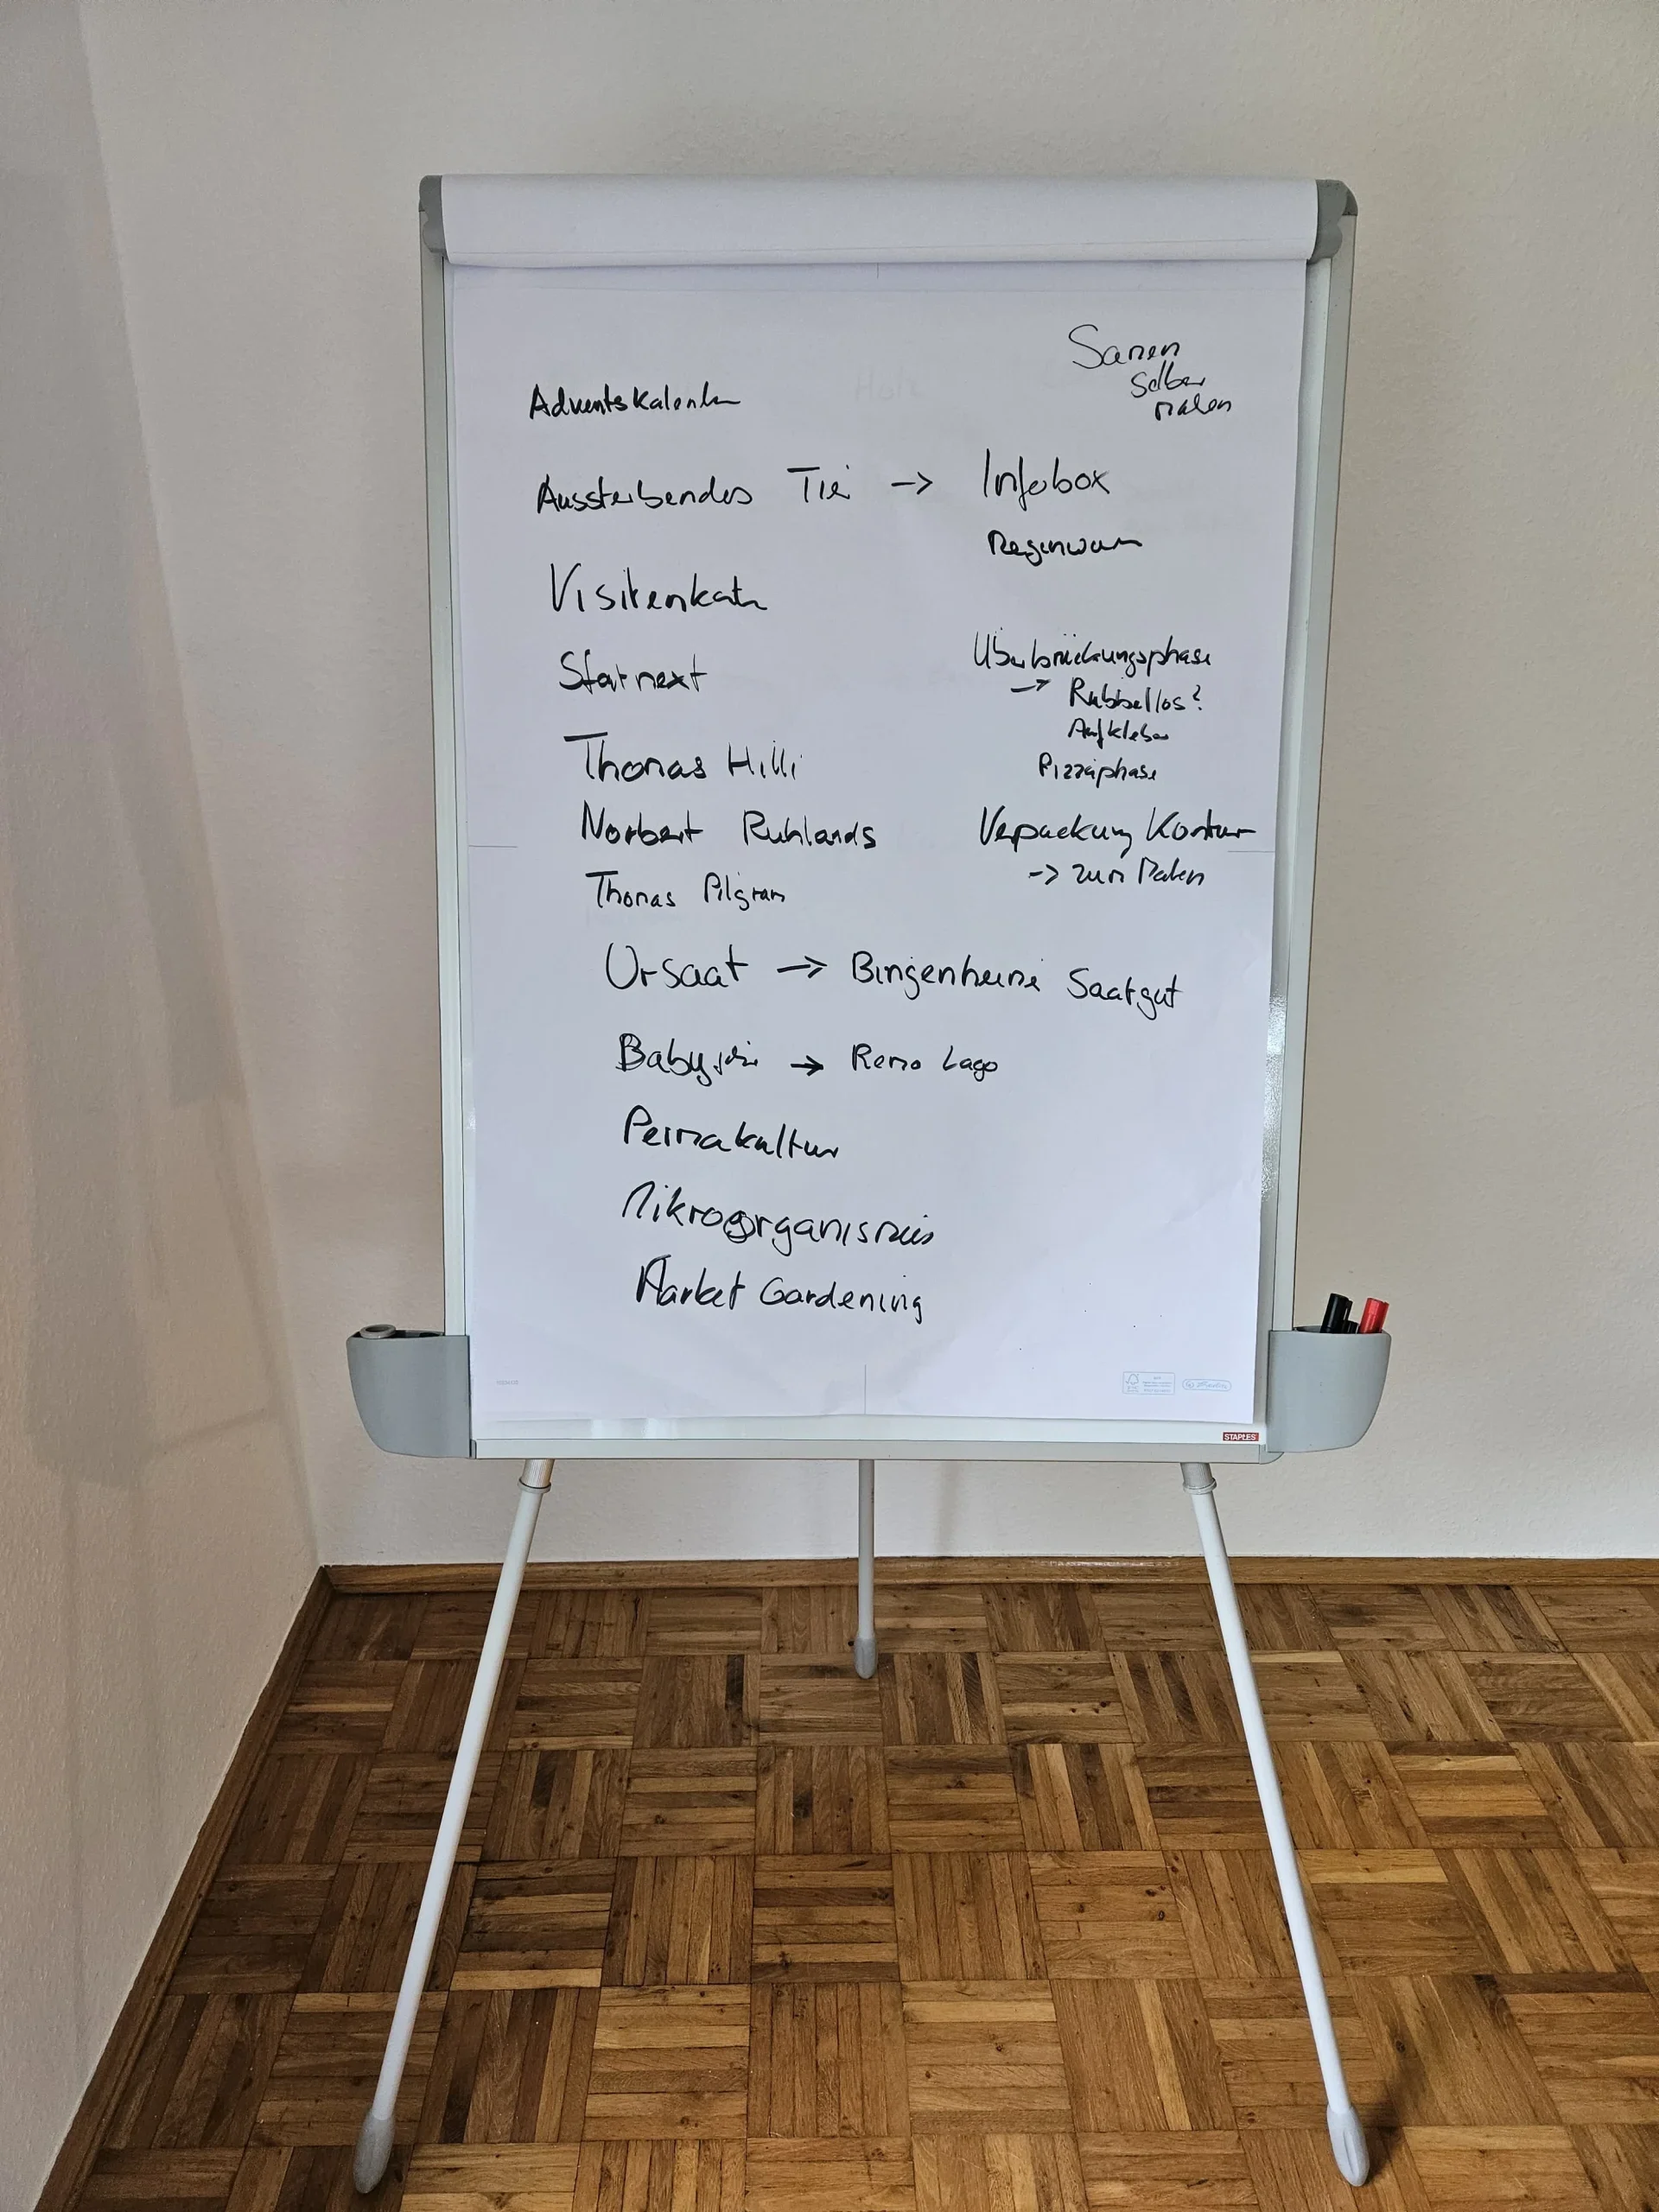 Samen
selber
malen
Adventskalender
Aussterbendes Tier -> Infobox
Regenwurm
Visitenkarte
Startnext
Überbrückungsphase
-> Rubbellos?
Aufkleber
Pizzaphase
Thomas Hilli
Norbert Ruhlands
Verpackung Kontur
-> zum Malen
Thomas Pilgram
Ursaat -> Bingenheimer Saatgut
-> Remo Lago
Permakultur
Mikroorganismus
Market Gardening
STAPLES